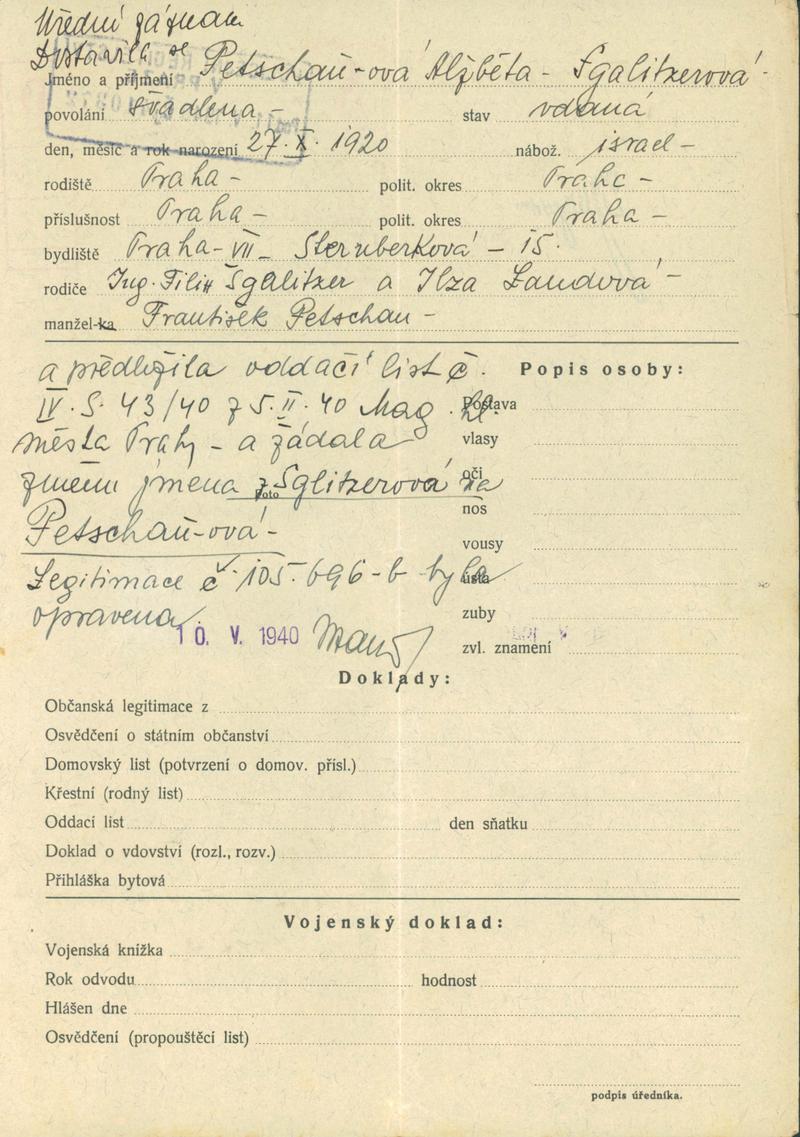 Úřední záznam
Dostavila se
Jméno a příjmení Petschau-ová Alžběta - Sgalitzerová -
povolání švadlena - stav vdaná
den, měsíc a rok narození 27. X. 1920 nábož. israel -
rodiště Praha - polit. okres Praha -
příslušnost Praha - polit. okres Praha -
bydliště Praha - VII - Sternberková - 15.
rodiče Ing. Filip Sgalitzer a Ilza Landová -
manžel-ka František Petschau -
a předložila oddací list č.
IV. S. 43/40 z 5. II. 40 Mag. hl.
města Prahy - a žádala
změnu jména z Sglitzerová na
Petschau-ová -
Legitimace č. 105.696-b byla
opravena.
10. V. 1940
Popis osoby:
Postava
vlasy
oči
Foto
nos
vousy
ústa
zuby
zvl. znamení
Doklady:
Občanská legitimace z
Osvědčení o státním občanství
Domovský list (potvrzení o domov. přísl.)
Křestní (rodný list)
Oddací list den sňatku
Doklad o vdovství (rozl., rozv.)
Přihláška bytová
Vojenský doklad:
Vojenská knížka
Rok odvodu hodnost
Hlášen dne
Osvědčení (propouštěcí list)
podpis úředníka.